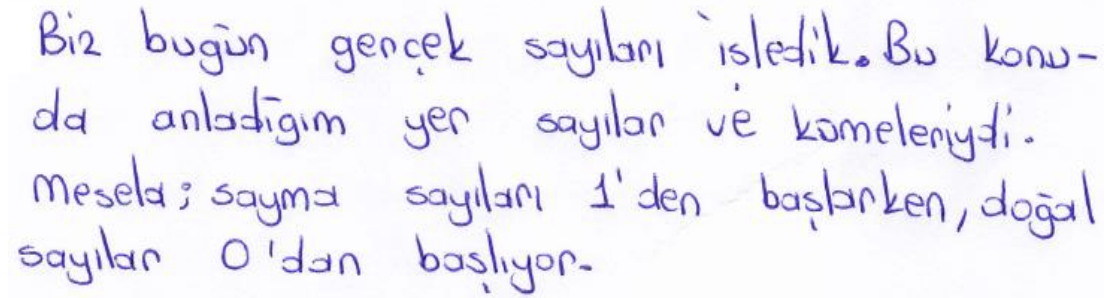 Biz bugün gerçek sayıları işledik. Bu konu-
da anladığım yer sayılar ve kümeleriydi.
Mesela; sayma sayıları 1'den başlarken, doğal
sayılar 0'dan başlıyor.